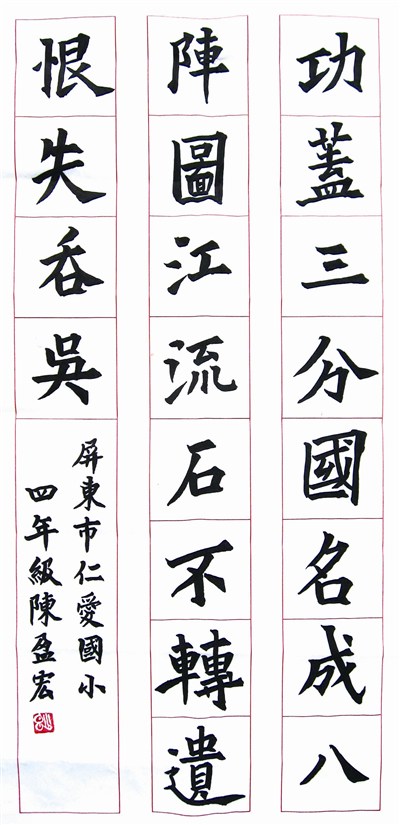 功蓋三分國名成八
陣圖江流石不轉遺
恨失吞吳
屏東市仁愛國小
四年級陳盈宏